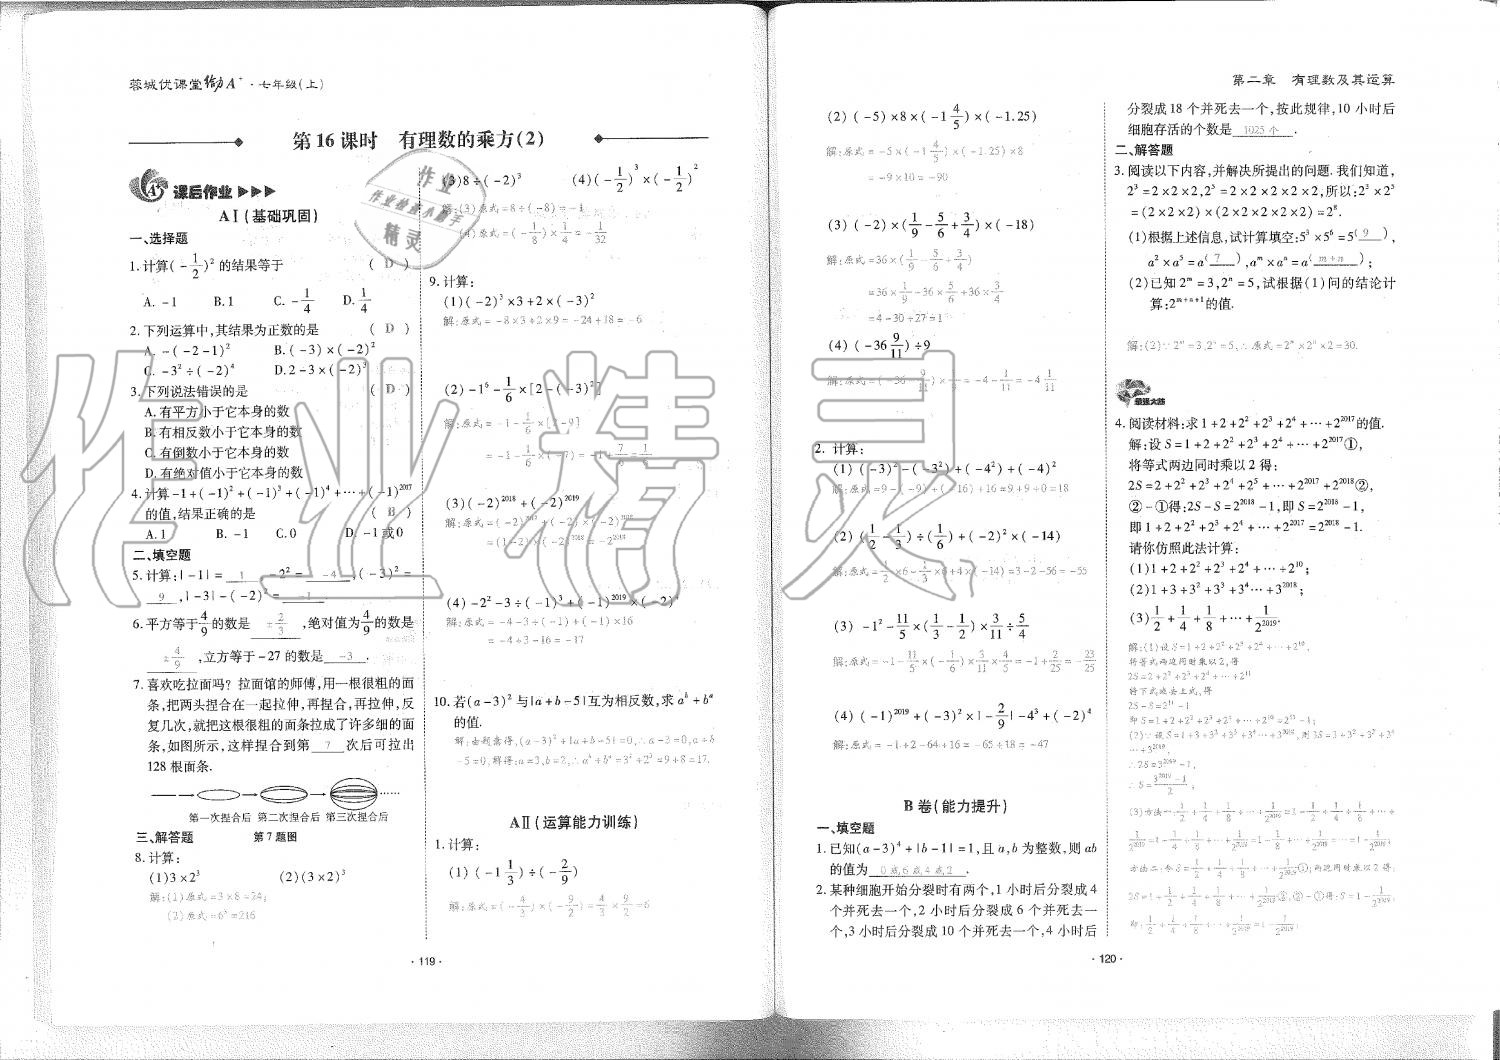 蓉城优课堂给力A⁺·七年级(上)
第16课时 有理数的乘方(2)
课后作业
AⅠ(基础巩固)
一、选择题
1.计算(-1/2)²的结果等于 ( D )
A. -1 B. 1 C. -1/4 D. 1/4
2.下列运算中,其结果为正数的是 ( D )
A. -(-2-1)² B. (-3)×(-2)²
C. -3²÷(-2)⁴ D. 2-3×(-2)³
3.下列说法错误的是 ( D )
A. 有平方小于它本身的数
B. 有相反数小于它本身的数
C. 有倒数小于它本身的数
D. 有绝对值小于它本身的数
4.计算-1+(-1)²+(-1)³+(-1)⁴+…+(-1)²⁰¹⁷
的值,结果正确的是 ( B )
A. 1 B. -1 C. 0 D. -1或0
二、填空题
5.计算:|-1|= 1 ,-2²= -4 ,(-3)²=
9 ,|-3|-(-2)²= -1 .
6.平方等于4/9的数是 ±2/3 ,绝对值为4/9的数是
±4/9 ,立方等于-27的数是 -3 .
7.喜欢吃拉面吗?拉面馆的师傅,用一根很粗的面
条,把两头捏合在一起拉伸,再捏合,再拉伸,反
复几次,就把这根很粗的面条拉成了许多细的面
条,如图所示,这样捏合到第 7 次后可拉出
128根面条.
第一次捏合后 第二次捏合后 第三次捏合后
第7题图
三、解答题
8.计算:
(1)3×2³ (2)(3×2)³
解:(1)原式=3×8=24;
(2)原式=6³=216
(3)8÷(-2)³ (4)(-1/2)³×(-1/2)²
解:(3)原式=8÷(-8)=-1
(4)原式=(-1/8)×1/4=-1/32
9.计算:
(1)(-2)³×3+2×(-3)²
解:原式=-8×3+2×9=-24+18=-6
(2)-1⁶-1/6×[2-(-3)²]
解:原式=-1-1/6×[2-9]
=-1-1/6×(-7)=-1+7/6=1/6
(3)(-2)²⁰¹⁸+(-2)²⁰¹⁹
解:原式=(-2)²⁰¹⁸+(-2)×(-2)²⁰¹⁸
=(1-2)×(-2)²⁰¹⁸=-2²⁰¹⁸
(4)-2²-3÷(-1)³+(-1)²⁰¹⁹×(-2)⁴
解:原式=-4-3÷(-1)+(-1)×16
=-4+3-16=-17
10.若(a-3)²与|a+b-5|互为相反数,求aᵇ+bᵃ
的值.
解:由题意得,(a-3)²+|a+b-5|=0,∴a-3=0,a+b
-5=0,解得:a=3,b=2,∴aᵇ+bᵃ=3²+2³=9+8=17.
AⅡ(运算能力训练)
1.计算:
(1)(-1 1/3)÷(-2/9)
解:原式=(-4/3)×(-9/2)=4/3×9/2=6
·119·
第二章 有理数及其运算
(2)(-5)×8×(-1 4/5)×(-1.25)
解:原式=-5×(-1 4/5)×(-1.25)×8
=-9×10=-90
(3)(-2)×(1/9-5/6+3/4)×(-18)
解:原式=36×(1/9-5/6+3/4)
=36×1/9-36×5/6+36×3/4
=4-30+27=1
(4)(-36 9/11)÷9
解:原式=(-36-9/11)×1/9=-4-1/11=-4 1/11
2. 计算:
(1)(-3)²-(-3²)+(-4²)+(-4)²
解:原式=9-(-9)+(-16)+16=9+9+0=18
(2)(1/2-1/3)÷(1/6)+(-2)²×(-14)
解:原式=1/2×6-1/3×6+4×(-14)=3-2-56=-55
(3) -1²-11/5×(1/3-1/2)×3/11÷5/4
解:原式=-1-11/5×(-1/6)×3/11×4/5=-1+2/25=-23/25
(4)(-1)²⁰¹⁹+(-3)²×|-2/9|-4³+(-2)⁴
解:原式=-1+2-64+16=-65+18=-47
B卷(能力提升)
一、填空题
1.已知(a-3)⁴+|b-1|=1,且a,b为整数,则ab
的值为 0或6或4或2 .
2.某种细胞开始分裂时有两个,1小时后分裂成4
个并死去一个,2小时后分裂成6个并死去一
个,3小时后分裂成10个并死去一个,4小时后
分裂成18个并死去一个,按此规律,10小时后
细胞存活的个数是 1025个 .
二、解答题
3.阅读以下内容,并解决所提出的问题.我们知道,
2³=2×2×2,2⁵=2×2×2×2×2,所以:2³×2⁵
=(2×2×2)×(2×2×2×2×2)=2⁸.
(1)根据上述信息,试计算填空:5³×5⁶=5⁽ 9 ⁾,
a²×a⁵=a⁽ 7 ⁾,aᵐ×aⁿ=a⁽ m+n ⁾;
(2)已知2ᵐ=3,2ⁿ=5,试根据(1)问的结论计
算:2ᵐ⁺ⁿ⁺¹的值.
解:(2)∵2ᵐ=3,2ⁿ=5,∴原式=2ᵐ×2ⁿ×2=30.
最强大脑
4.阅读材料:求1+2+2²+2³+2⁴+…+2²⁰¹⁷的值.
解:设S=1+2+2²+2³+2⁴+…+2²⁰¹⁷①,
将等式两边同时乘以2得:
2S=2+2²+2³+2⁴+…+2²⁰¹⁷+2²⁰¹⁸②,
②-①得:2S-S=2²⁰¹⁸-1,即S=2²⁰¹⁸-1,
即1+2+2²+2³+2⁴+…+2²⁰¹⁷=2²⁰¹⁸-1.
请你仿照此法计算:
(1)1+2+2²+2³+2⁴+…+2¹⁰;
(2)1+3+3²+3³+3⁴+…+3²⁰¹⁸;
(3)1/2+1/4+1/8+…+1/2²⁰¹⁹.
解:(1)设S=1+2+2²+2³+2⁴+…+2¹⁰,
将等式两边同时乘以2,得
2S=2+2²+2³+2⁴+…+2¹¹
将下式减去上式,得
2S-S=2¹¹-1
即S=1+2+2²+2³+2⁴+…+2¹⁰=2¹¹-1;
(2)设S=1+3+3²+3³+3⁴+…+3²⁰¹⁸,则3S=3+3²+3³+3⁴
…+3²⁰¹⁹,
∴2S=3²⁰¹⁹-1,
∴S=(3²⁰¹⁹-1)/2,
·120·
作业精灵